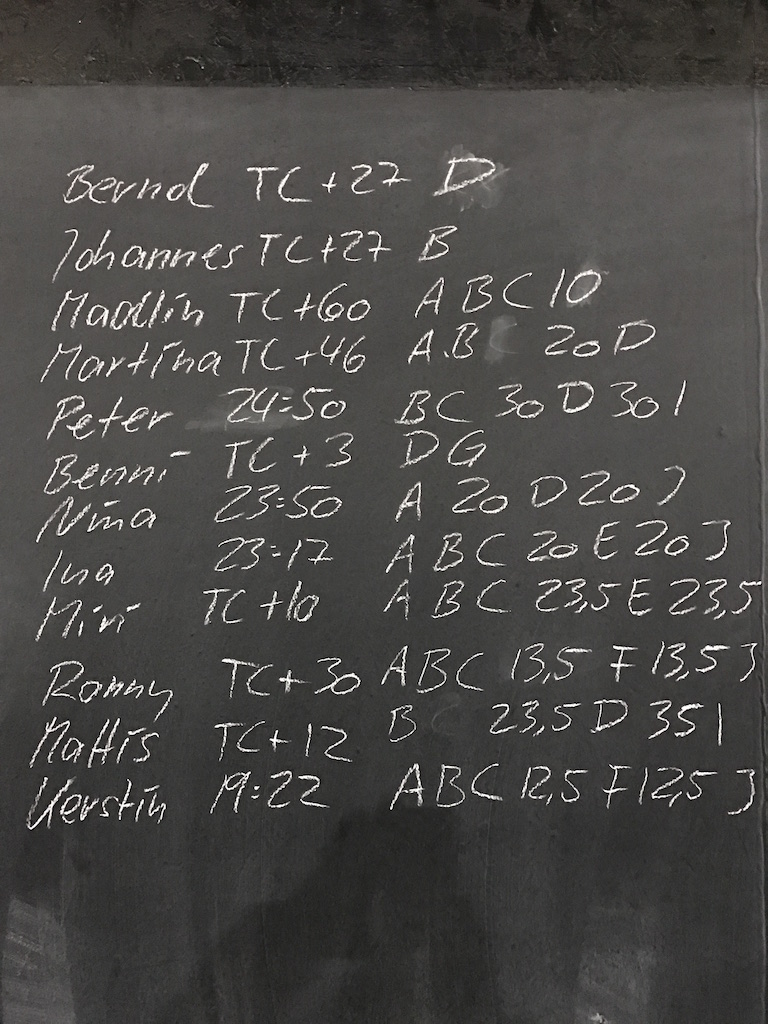 Bernd TC+27 D
Johannes TC+27 B
Madlin TC+60 A B C 10
Martina TC+46 A.B 20 D
Peter 24:50 B C 30 D 30 I
Benni TC+3 D G
Nina 23:50 A 20 D 20 J
Ina 23:17 A B C 20 E 20 J
Miri TC+10 A B C 23,5 E 23,5
Ronny TC+30 A B C 13,5 F 13,5 J
Mattis TC+12 B 23,5 D 35 I
Kerstin 19:22 A B C 12,5 F 12,5 J